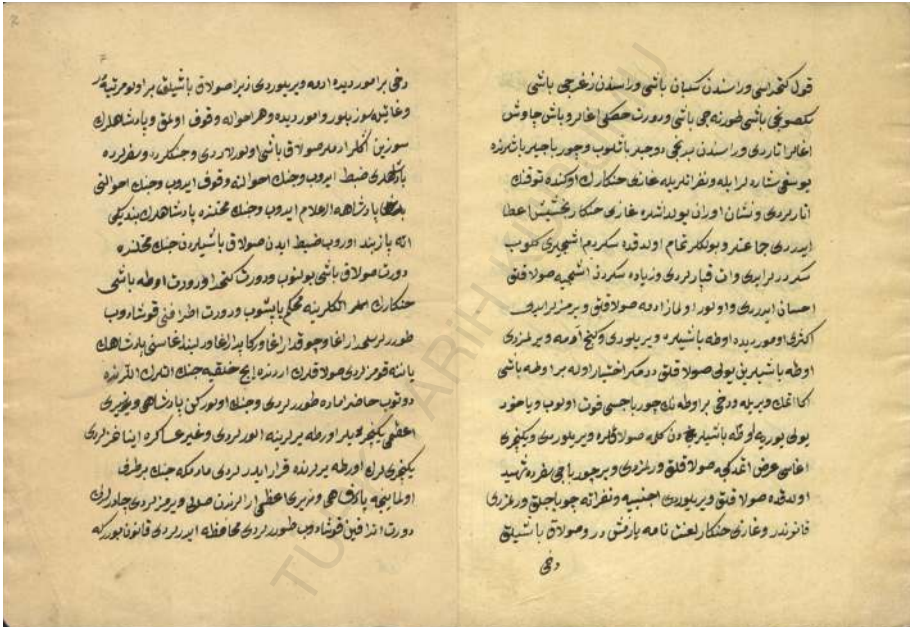 قول كتخداسى وراسندن سكبان باشى وراسندن زغرجى باشى
صكصونجى باشى طورنه جى باشى ودورت خصكى اغالر وباش چاوش
اغالر وراسندن
يوسفى ستاره لر ايله ونفراتلريله غازى خنكارك اوكنده توفنك
اتارلردى ونشان اوران يولداشلره غازى خنكار بخشيش اعطا
ايدردى جماعتلر وبولكلر تمام اولدقده سكردم اشجيلرى كلوب
سكردرلردى وات قپارلردى وزياده سكردن اشجيه صولاقلق
احسان ايدردى واولور اولماز ادمه صولاقلق ويرمزلردى
اكثرى امور ديده اوطه باشيلره ويريلوردى وكنج ادمه ويرلمزدى
اوطه باشيلرين يولى صولاقلق در مكر اختيار اوله بر اوطه باشى
كا اغالك ويريله ودخى بر اوطه نك چورباجيسى فوت اولوب وياخود
يولى يوريه اوطه باشيلريندن كله صولاقلره ويريلوردى ويكيچرى
اغاسى عرض اغدكجه صولاقلق ورلمزدى وبر چورباجى سفرده شهيد
اولدقده صولاقلق ويريلوردى اجنبيه ونفراته چورباجيلق ورلمزدى
قانوندر وغازى خنكار لعنت نامه يازمش در وصولاق باشيلق
دخى
دخى بر امور ديده ادمه ويريلوردى زيرا صولاق باشيلق بر اولو مرتبه در
وغايتله سوز بلور وامور ديده وهر احواله وقوف اولمق وپادشاهلرك
سوزين اكلر ادملر صولاق باشى اولورلردى وجنكلرده وسفرلرده
ضبط ايدوب وجنك احوالنه وقوف ايدوب وجنك احوالنى
پادشاهه اعلام ايدوب وجنك محلنده پادشاهلرك بنديكى
اته بازبند اوروب ضبط ايدن صولاق باشيلردن جنك محلنده
دورت صولاق باشى بولنوب ودورت كتخدا ودورت اوطه باشى
خنكارك اتكلرينه محكم ياپيشوب ودورت اطرافنى قوشادوب
طورلر سلحدار اغا وچوقدار اغا وركابدار اغا ودلبند اغاسنى پادشاهك
ياننه قومزلردى صولاقلرك اردنده ايچ خلقيله جنك التلرك اللرنده
طوتوب حاضر اماده طورلردى وجنك اولوركن پادشاهى ووزيرى
اعظمى يكيچريلر اورطه يرلرينه الورلردى وغير عساكره اينانمزلردى
يكيچرى لرك اورطه يرلرنده قرار ايدرلردى مادمكه جنك برطرف
اولماينجه پادشاهى ووزيرى اعظمى ارالرندن صالى ويرمزلردى چادرلرك
دورت اطرافين قوشادوب طورورلردى محافظه ايدرلردى قانون بودركه